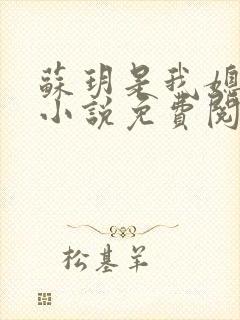 蘇玥是我媳
小說免費閱
松基羊